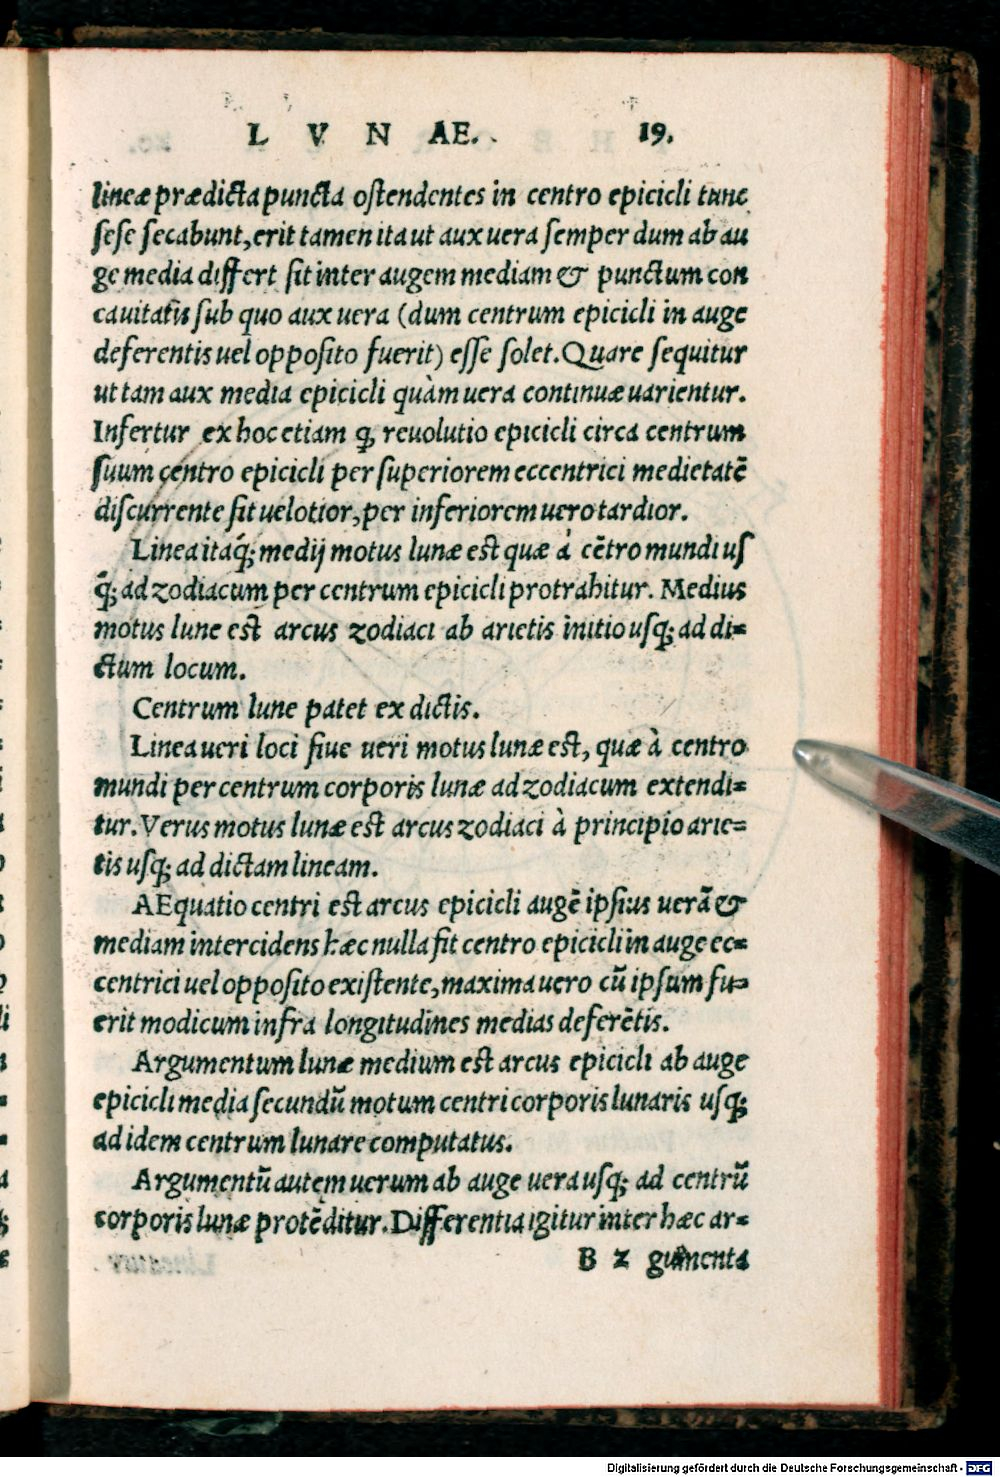 L V N AE. 19.
lineæ prædicta puncta oſtendentes in centro epicicli tunc
ſeſe ſecabunt, erit tamen ita ut aux uera ſemper dum ab au
ge media differt ſit inter augem mediam & punctum con
cauitatis ſub quo aux uera (dum centrum epicicli in auge
deferentis uel oppoſito fuerit) eſſe ſolet. Quare ſequitur
ut tam aux media epicicli quàm uera continuæ uarientur.
Infertur ex hoc etiam ꝙ reuolutio epicicli circa centrum
ſuum centro epicicli per ſuperiorem eccentrici medietatē
diſcurrente ſit uelotior, per inferiorem uero tardior.
Linea itaq́; medij motus lunæ eſt quæ à cētro mundi uſ
q́; ad zodiacum per centrum epicicli protrahitur. Medius
motus lune eſt arcus zodiaci ab arietis initio uſq; ad di=
ctum locum.
Centrum lune patet ex dictis.
Linea ueri loci ſiue ueri motus lunæ eſt, quæ à centro
mundi per centrum corporis lunæ ad zodiacum extendi=
tur. Verus motus lunæ eſt arcus zodiaci à principio arie=
tis uſq; ad dictam lineam.
AEquatio centri eſt arcus epicicli augē ipſius uerā &
mediam intercidens hæc nulla fit centro epicicli in auge ec=
centrici uel oppoſito exiſtente, maxima uero cū ipſum fu=
erit modicum infra longitudines medias deferētis.
Argumentum lunæ medium eſt arcus epicicli ab auge
epicicli media ſecundū motum centri corporis lunaris uſq;
ad idem centrum lunare computatus.
Argumentū autem uerum ab auge uera uſq; ad centrū
corporis lunæ protēditur. Differentia igitur inter hæc ar=
B 2 gumenta
Digitalisierung gefördert durch die Deutsche Forschungsgemeinschaft - DFG